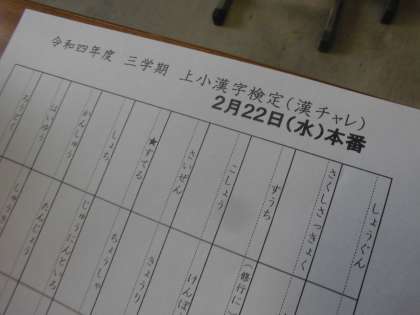 令和四年度 三学期 上小漢字検定(漢チャレ)
2月22日(水)本番
しょうぐん
さくしさっきょく
すうち
こしょう
さいぜん
★すてる
しょち
かんしゅう
ばいゆ
(修行に)
げんば
きょうり
ちょうしゃ
じゅうにんといろ
たんじょう